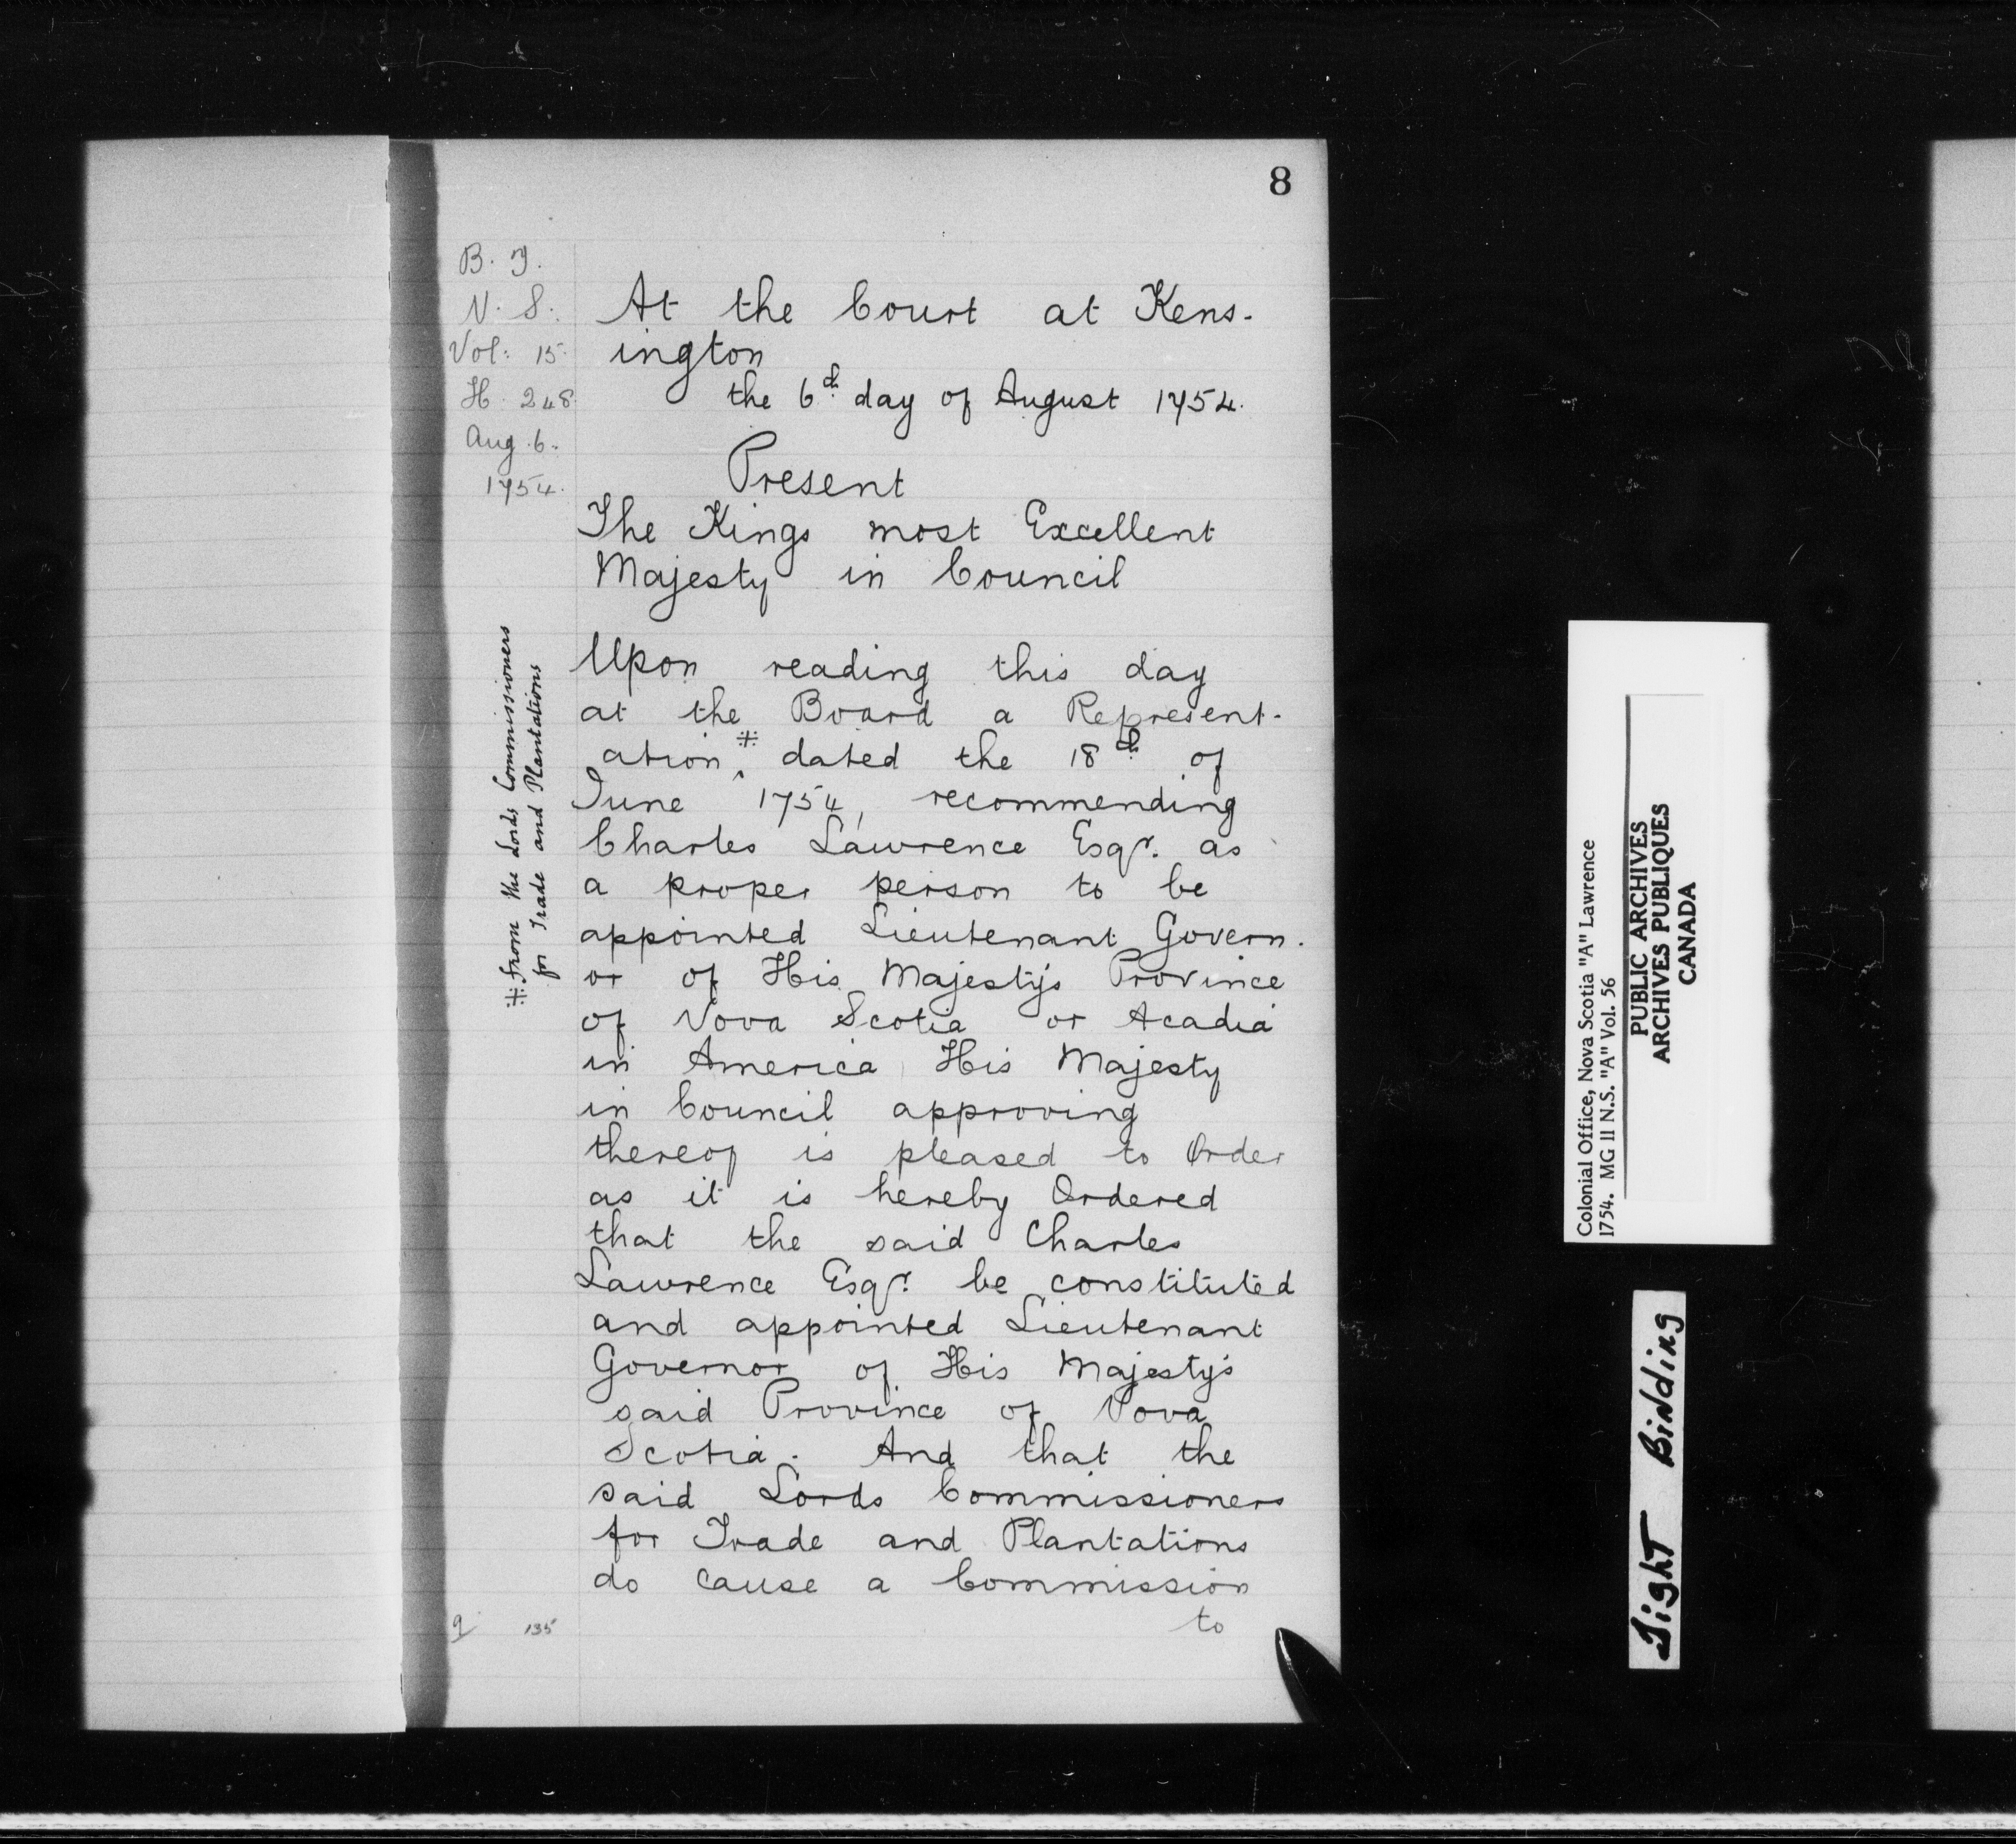 8
B. T.
N. S.
Vol: 15.
H. 248.
Aug. 6.
1754.
At the Court at Kens-
ington
the 6th day of August 1754.
Present
The Kings most Excellent
Majesty in Council
Upon reading this day
at the Board a Represent-
ation,⁂ dated the 18th of
June 1754, recommending
Charles Lawrence Esqr. as
a proper person to be
appointed Lieutenant Govern-
or of His Majesty's Province
of Nova Scotia or Acadia
in America His Majesty
in Council approving
thereof is pleased to Order
as it is hereby Ordered
that the said Charles
Lawrence Esqr. be constituted
and appointed Lieutenant
Governor of His Majesty's
said Province of Nova
Scotia. And that the
said Lords Commissioners
for Trade and Plantations
do cause a Commission
to
⁂ from the Lords Commissioners
for Trade and Plantations
9 135
Colonial Office, Nova Scotia "A" Lawrence
1754. MG 11 N.S. "A" Vol. 56
PUBLIC ARCHIVES
ARCHIVES PUBLIQUES
CANADA
Tight Binding